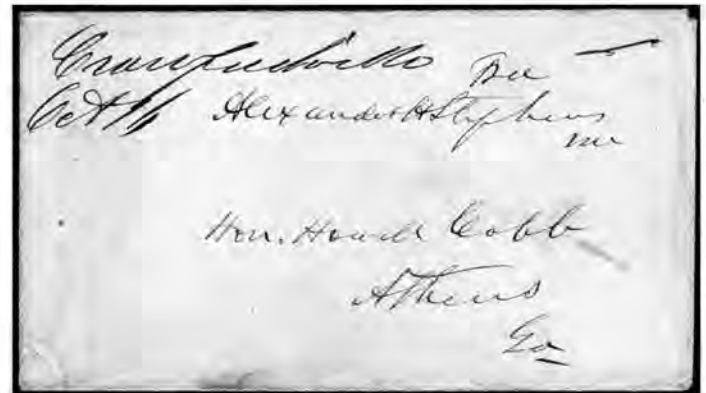 Crawfordville Free
Oct
Alexander H Stephens
mc
Hon. Howell Cobb
Athens
Ga